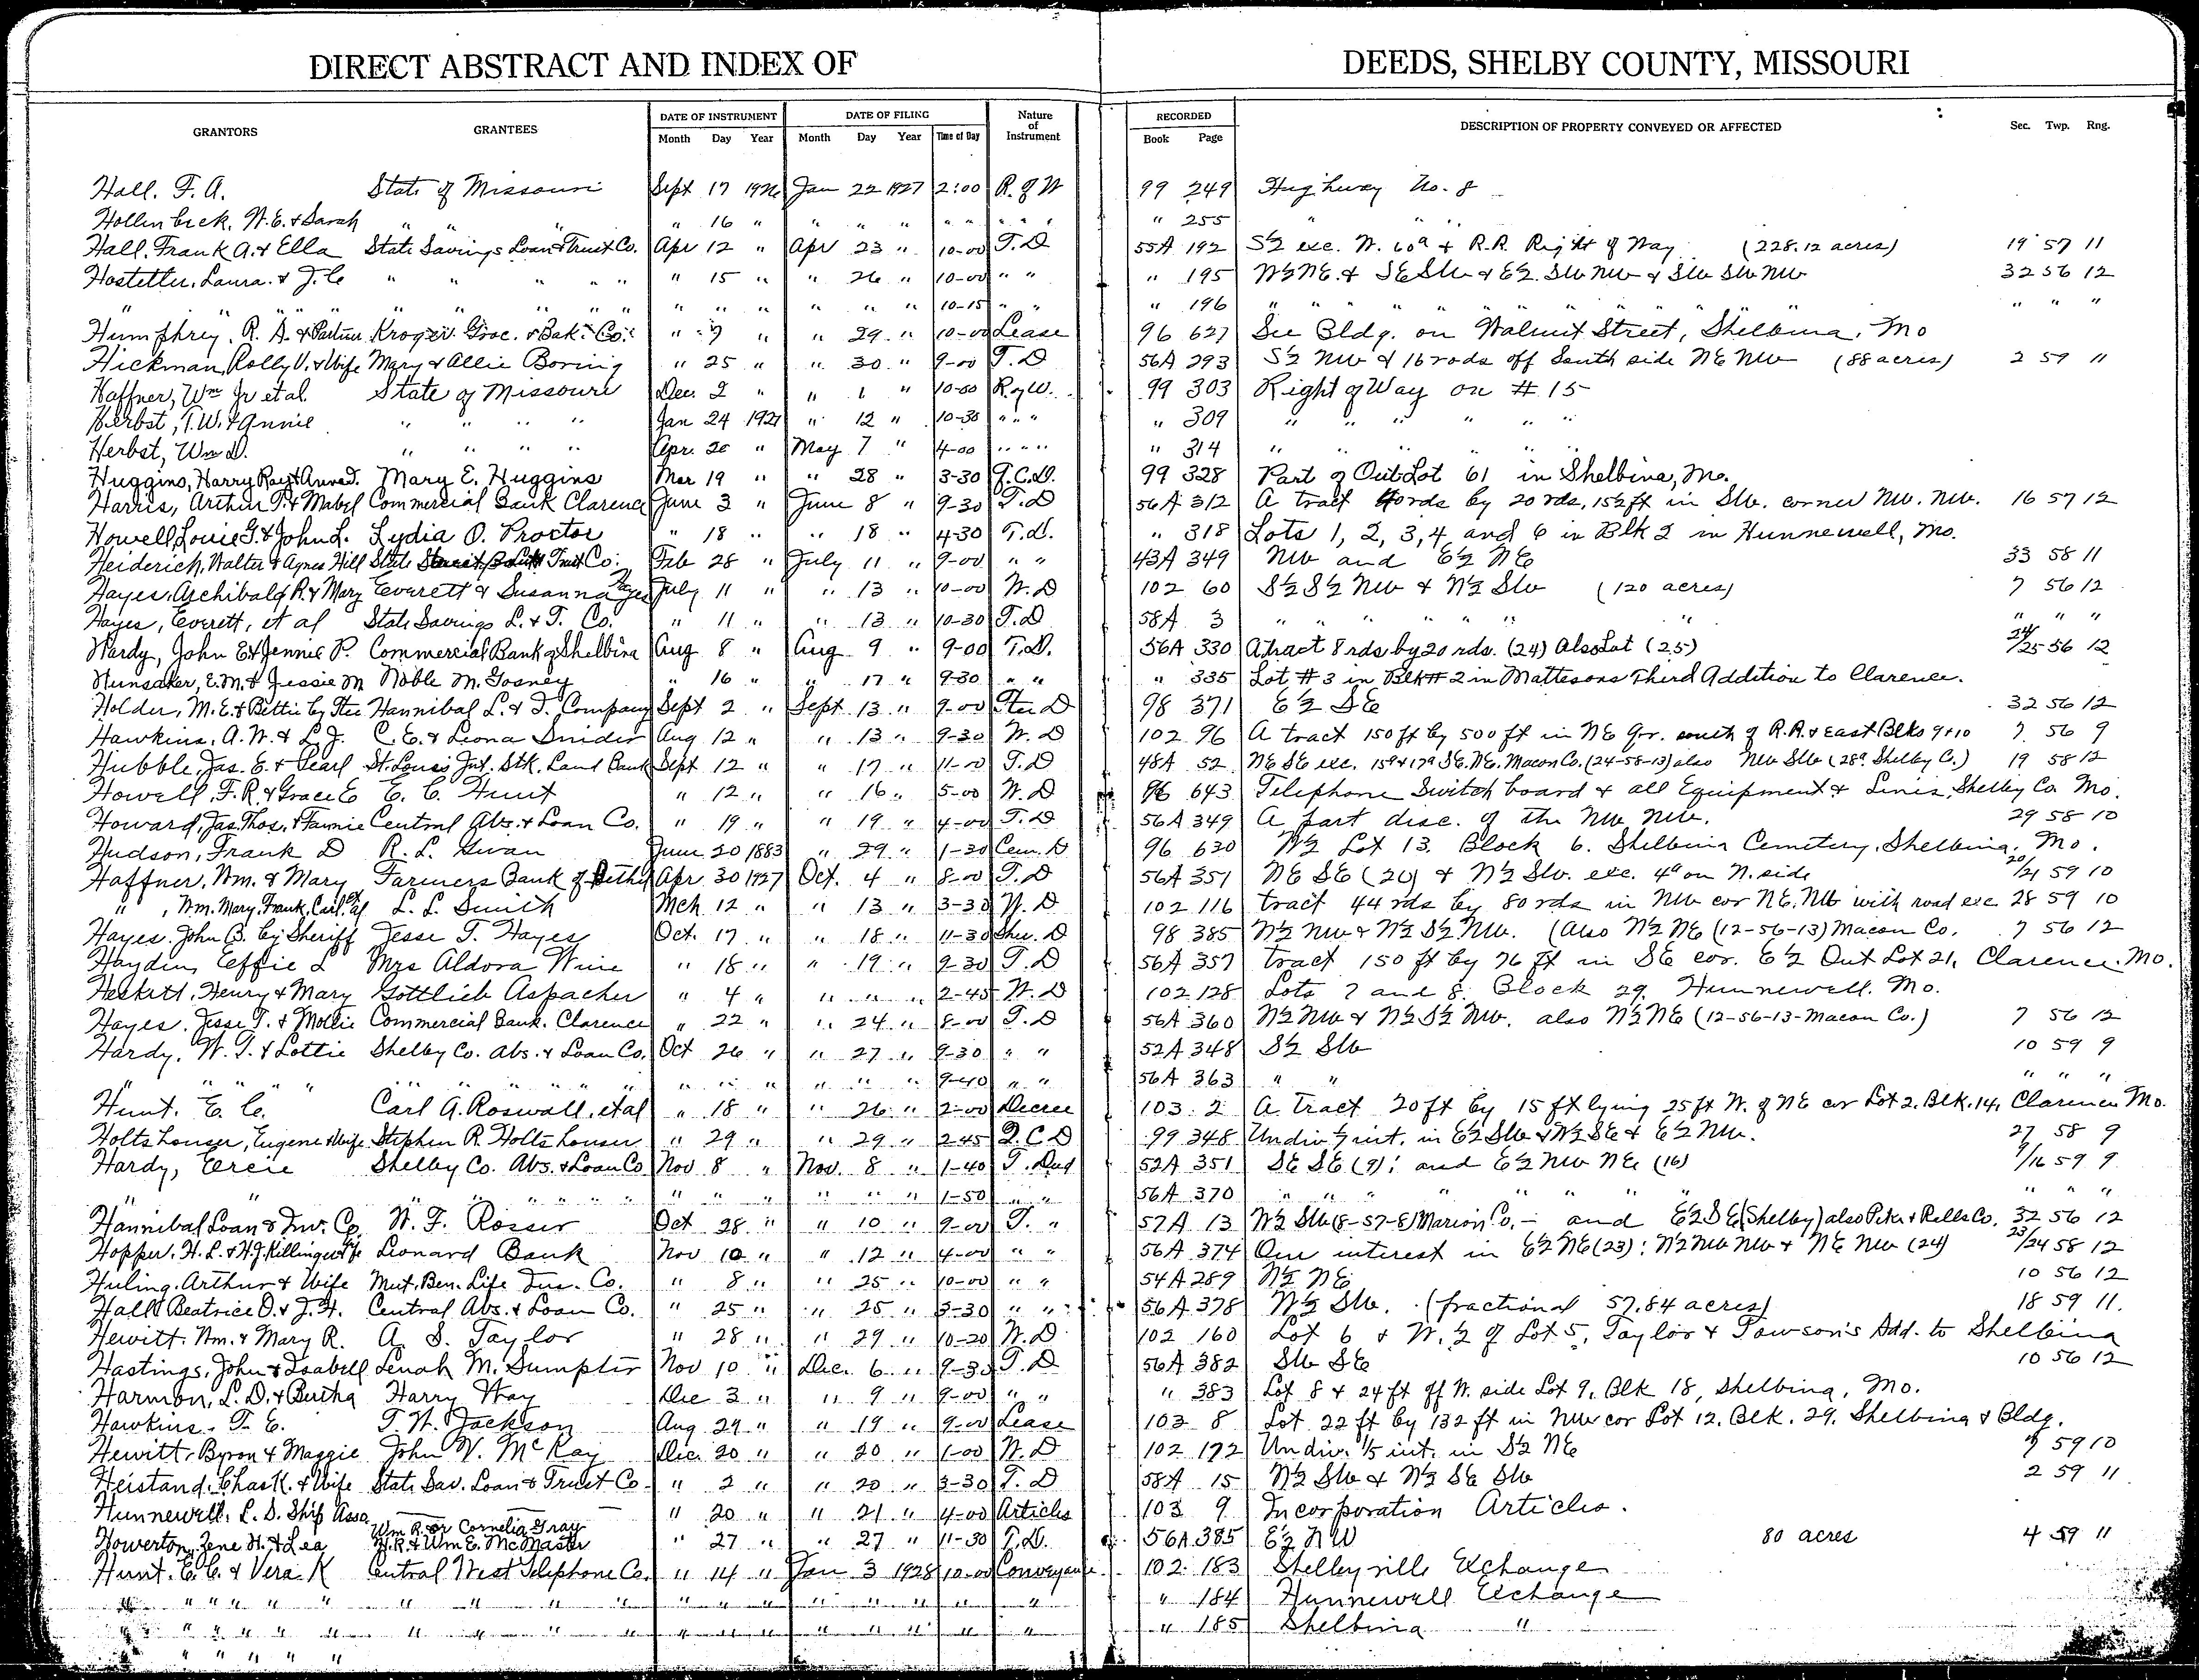 DIRECT ABSTRACT AND INDEX OF DEEDS, SHELBY COUNTY, MISSOURI
GRANTORS GRANTEES DATE OF INSTRUMENT DATE OF FILING Nature of Instrument RECORDED DESCRIPTION OF PROPERTY CONVEYED OR AFFECTED Sec. Twp. Rng.
Month Day Year Month Day Year Time of Day Book Page
Hall. F. A. State of Missouri Sept 17 1926 Jan 22 1927 2:00 R. of W 99 249 Highway No. 8
Hollenbeck, W. E. & Sarah " " " " 16 " " " " " " " " " " 255 " " "
Hall, Frank A. & Ella State Savings Loan & Trust Co. Apr 12 " Apr 23 " 10-00 T. D 55A 192 S½ exc. W. 60a & R.R. Right of Way (228.12 acres) 19 57 11
Hostetter, Laura. & J. C " " " " " 15 " " 26 " 10-00 " " " 195 W½ NE. & SE SW & E½ SW NW & SW SW NW 32 56 12
" " " " " " " " " " " " " " 10-15 " " " 196 " " " " " " " " " " " " "
Humphrey, R. A. & Partner Kroger Groc. & Bak. Co. " 9 " " 29 " 10-00 Lease 96 627 See Bldg. on Walnut Street, Shelbina, Mo
Hickman, Rolly V. & Wife Mary & Allie Boring " 25 " " 30 " 9-00 T. D 56A 293 S½ NW & 16 rods off South side NE NW (88 acres) 2 59 11
Haffner, Wm Jr et al. State of Missouri Dec. 2 " " 1 " 10-00 R of W. 99 303 Right of Way on # 15
Herbst, T. W. & Annie " " " " Jan 24 1927 " 12 " 10-30 " " " " 309 " " " " "
Herbst, Wm D. " " " " Apr. 20 " May 7 " 4-00 " " " " " 314 " " " " "
Huggins, Harry Ray & Anna J. Mary E. Huggins Mar 19 " " 28 " 3-30 Q. C. D. 99 328 Part of Out Lot 61 in Shelbina, Mo.
Harris, Arthur T. & Mabel Commercial Bank Clarence June 3 " June 8 " 9-30 T. D 56A 312 A tract 40 rds by 20 rds, 15½ ft in SW. corner NW. NW. 16 57 12
Howell, Louie G. & John L. Lydia O. Proctor " 18 " " 18 " 4-30 T. D. " 318 Lots 1, 2, 3, 4 and 6 in Blk 2 in Hunnewell, Mo.
Heiderich, Walter & Agnes Hill State Trust Co. Feb 28 " July 11 " 9-00 " " 43A 349 NW and E½ NE 33 58 11
Hayes, Archibald R. & Mary Everett & Susanna Hayes July 11 " " 13 " 10-00 W. D 102 60 S½ S½ NW & N½ SW (120 acres) 7 56 12
Hayes, Everett, et al State Savings L. & T. Co. " 11 " " 13 " 10-30 T. D 58A 3 " " " " " " " " " "
Hardy, John E. & Jennie P. Commercial Bank of Shelbina Aug 8 " Aug 9 " 9-00 T. D. 56A 330 A tract 8 rds by 20 rds. (24) Also Lot (25) 24/25 56 12
Hunsaker, E. M. & Jessie M Noble M. Gosney " 16 " " 17 " 9-30 " " " 335 Lot # 3 in Blk # 2 in Mattesons Third Addition to Clarence.
Holder, M. E. & Bettie by Tree Hannibal L. & I. Company Sept 2 " Sept 13 " 9-00 Tree D 98 371 E½ SE 32 56 12
Hawkins, A. W. & L. J. C. E. & Leona Snider Aug 12 " " 13 " 9-30 W. D 102 96 A tract 150 ft by 500 ft in NE Qr. south of R.R. & East Blks 9 & 10 7 56 9
Hubble, Jas. E. & Pearl St. Louis Jnt. Stk. Land Bank Sept 12 " " 17 " 11-00 T. D 48A 52 NE SE exc. 15a & 17a SE. NE. Macon Co. (24-58-13) also NW SW (28a Shelby C.) 19 58 12
Howell, F. R. & Grace E E. C. Hunt " 12 " " 16 " 5-00 W. D 96 643 Telephone Switch board & all Equipment & Lines, Shelby Co. Mo.
Howard, Jas. Thos. & Fannie Central Abs. & Loan Co. " 19 " " 19 " 4-00 T. D 56A 349 A part disc. of the NW NW. 29 58 10
Hudson, Frank D R. L. Gwan June 20 1883 " 29 " 1-30 Cem. D 96 630 W½ Lot 13, Block 6. Shelbina Cemetery, Shelbina, Mo.
Haffner, Wm. & Mary Farmers Bank of Bethel Apr 30 1927 Oct. 4 " 8-00 T. D 56A 351 NE SE (20) & N½ SW. exc. 4a on N. side 20/21 59 10
" , Wm. Mary, Frank, Carl, et al L. L. Smith Mch 12 " " 13 " 3-30 W. D 102 116 tract 44 rds by 80 rds in NW cor NE. NW with road exc 28 59 10
Hayes, John B. by Sheriff Jesse T. Hayes Oct. 17 " " 18 " 11-30 Sher. D 98 385 N½ NW & N½ S½ NW. (Also N½ NE (12-56-13) Macon Co. 7 56 12
Hayden, Effie L Mrs Aldora Wine " 18 " " 19 " 9-30 T. D 56A 357 tract 150 ft by 76 ft in SE cor. E½ Out Lot 21, Clarence Mo.
Heskett, Henry & Mary Gottlieb Aspacher " 4 " " " " 2-45 W. D 102 128 Lots 7 and 8. Block 29. Hunnewell. Mo.
Hayes, Jesse T. & Mollie Commercial Bank. Clarence " 22 " " 24 " 8-00 T. D 56A 360 N½ NW & N½ S½ NW. also N½ NE (12-56-13-Macon Co.) 7 56 12
Hardy, W. T. & Lottie Shelby Co. Abs. & Loan Co. Oct 26 " " 27 " 9-30 " " 52A 348 S½ SW 10 59 9
" " " " " " " " " " " " " " " 9-40 " " 56A 363 " " " " "
Hunt. E. C. Carl A. Roswall, et al " 18 " " 26 " 2-00 Decree 103 2 A tract 20 ft by 15 ft lying 25 ft W. of NE cor Lot 2, Blk. 14, Clarence Mo.
Holtshouser, Eugene & Wife Stephen R. Holtshouser " 29 " " 29 " 2-45 Q. C D 99 348 Undiv 1/7 int. in E½ SW & W½ SE & E½ NW. 27 58 9
Hardy, Ercie Shelby Co. Abs. & Loan Co Nov 8 " Nov. 8 " 1-40 T. Deed 52A 351 SE SE (9); and E½ NW NE (16) 9/16 59 9
" " " " " " " " " " " " " 1-50 " " 56A 370 " " " " " " " " " "
Hannibal Loan & Inv. Co. W. F. Rosser Oct 28 " " 10 " 9-00 T. " 57A 13 W½ SW (8-57-8) Marion Co. - and E½ SE (Shelby) also Pike & Ralls Co. 32 56 12
Hopper, H. L. & H. J. Killinger Leonard Bank Nov 10 " " 12 " 4-00 " " 56A 374 Our interest in E½ NE (23); N½ NW NW & NE NW (24) 23/24 58 12
Huling, Arthur & Wife Mut. Ben. Life Ins. Co. " 8 " " 25 " 10-00 " " 54A 289 N½ NE 10 56 12
Hall Beatrice O. & J. H. Central Abs. & Loan Co. " 25 " " 25 " 3-30 " " 56A 378 W½ SW. (fractional 57.84 acres) 18 59 11.
Hewitt, Wm. & Mary R. A. S. Taylor " 28 " " 29 " 10-20 W. D 102 160 Lot 6 & W. ½ of Lot 5, Taylor & Towson's Add. to Shelbina
Hastings, John & Isabell Lenah M. Sumpter Nov 10 " Dec. 6 " 9-30 T. D 56A 382 SW SE 10 56 12
Harmon, L. D. & Bertha Harry Way Dec 3 " " 9 " 9-00 " " " 383 Lot 8 & 24 ft off W. side Lot 9, Blk 18, Shelbina, Mo.
Hawkins. T. E. T. W. Jackson Aug 29 " " 19 " 9-00 Lease 103 8 Lot 22 ft by 132 ft in NW cor Lot 12, Blk. 29. Shelbina & Bldg.
Hewitt, Byron & Maggie John V. McKay Dec. 20 " " 20 " 1-00 W. D 102 172 Undiv. 1/5 int. in S½ NE 7 59 10
Heistand, Chas K. & Wife State Sav. Loan & Trust Co. " 2 " " 20 " 3-30 T. D 58A 15 N½ SW & N½ SE SW 2 59 11
Hunnewell, L. S. Ship Assn. — " 20 " " 21 " 4-00 Articles 103 9 Incorporation Articles.
Howerton, Zene H. & Lea Wm R. or Cornelia Gray H. R. & Wm E. McMaster " 27 " " 27 " 11-30 T. D. 56A 385 E½ NW 80 acres 4 59 11
Hunt. E. C. & Vera K Central West Telephone Co. " 14 " Jan 3 1928 10-00 Conveyance 102 183 Shelbyville Exchange
" " " " " " " " " " " " " " " " " 184 Hunnewell Exchange
" " " " " " " " " " " " " " " " " 185 Shelbina "
" " " " "